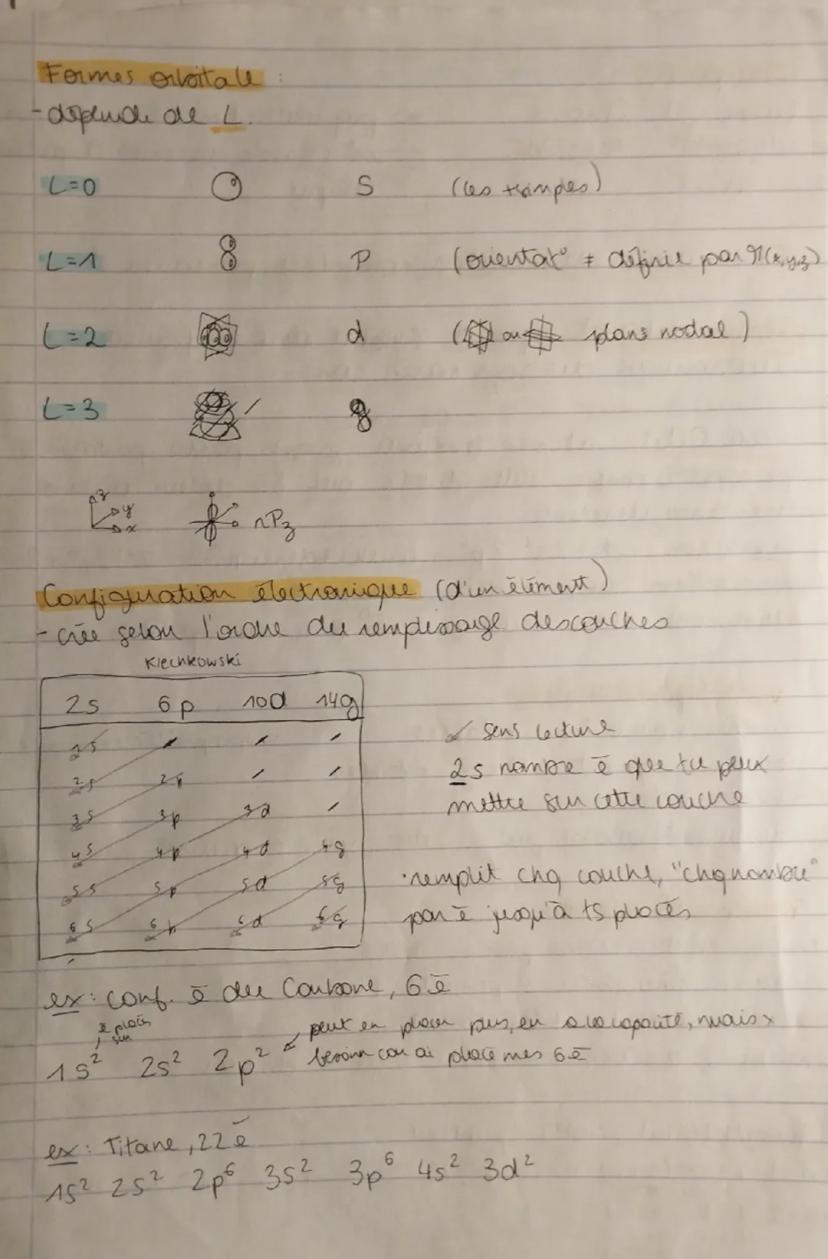 Formes orbitale :
- dépende de L.
L=0 S (les simples)
L=1 P (orientat° ≠ définie par M(x,y,z)
L=2 d (ou plans nodal)
L=3 g
z y x nPz
Configuration électronique (d'un élément)
- crée selon l'ordre du remplissage des couches
Klechkowski
2s 6p 10d 14g
1s / / /
2s 2p / /
3s 3p 3d /
4s 4p 4d 4g
5s 5p 5d 5g
6s 6p 6d 6g
↙ sens lecture
2s nombre ē que tu peux
mettre sur cette couche
· remplit chq couche, "chq nombre"
par ē jusqu'à ts placés
ex: conf. ē du Carbone, 6ē
1s² 2s² 2p² ↙ peut en placer plus, en a la capacité, mais x
besoin car ai placé mes 6ē
ex: Titane, 22ē
1s² 2s² 2p⁶ 3s² 3p⁶ 4s² 3d²